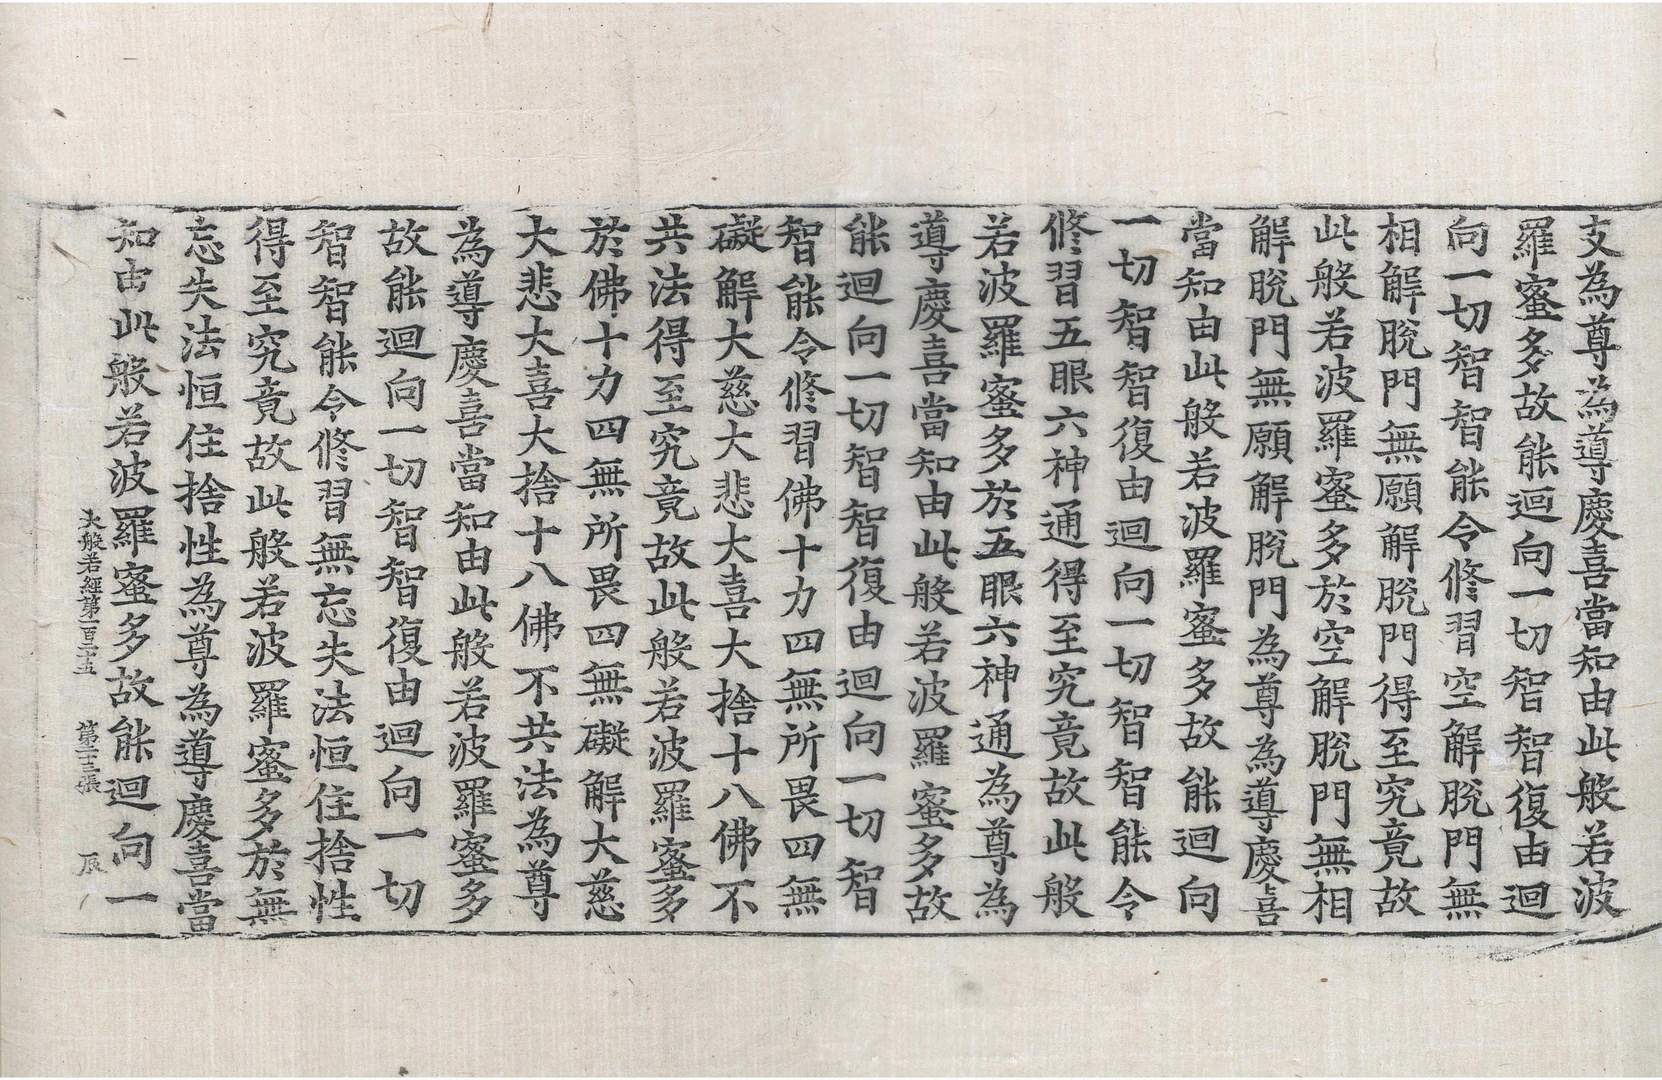 支為尊為導慶喜當知由此般若波
羅蜜多故能迴向一切智智復由迴
向一切智智能令修習空解脫門無
相解脫門無願解脫門得至究竟故
此般若波羅蜜多於空解脫門無相
解脫門無願解脫門為尊為導慶喜
當知由此般若波羅蜜多故能迴向
一切智智復由迴向一切智智能令
修習五眼六神通得至究竟故此般
若波羅蜜多於五眼六神通為尊為
導慶喜當知由此般若波羅蜜多故
能迴向一切智智復由迴向一切智
智能令修習佛十力四無所畏四無
礙解大慈大悲大喜大捨十八佛不
共法得至究竟故此般若波羅蜜多
於佛十力四無所畏四無礙解大慈
大悲大喜大捨十八佛不共法為尊
為導慶喜當知由此般若波羅蜜多
故能迴向一切智智復由迴向一切
智智能令修習無忘失法恒住捨性
得至究竟故此般若波羅蜜多於無
忘失法恒住捨性為尊為導慶喜當
知由此般若波羅蜜多故能迴向一
大般若經第一百二十五 第二十三張 辰